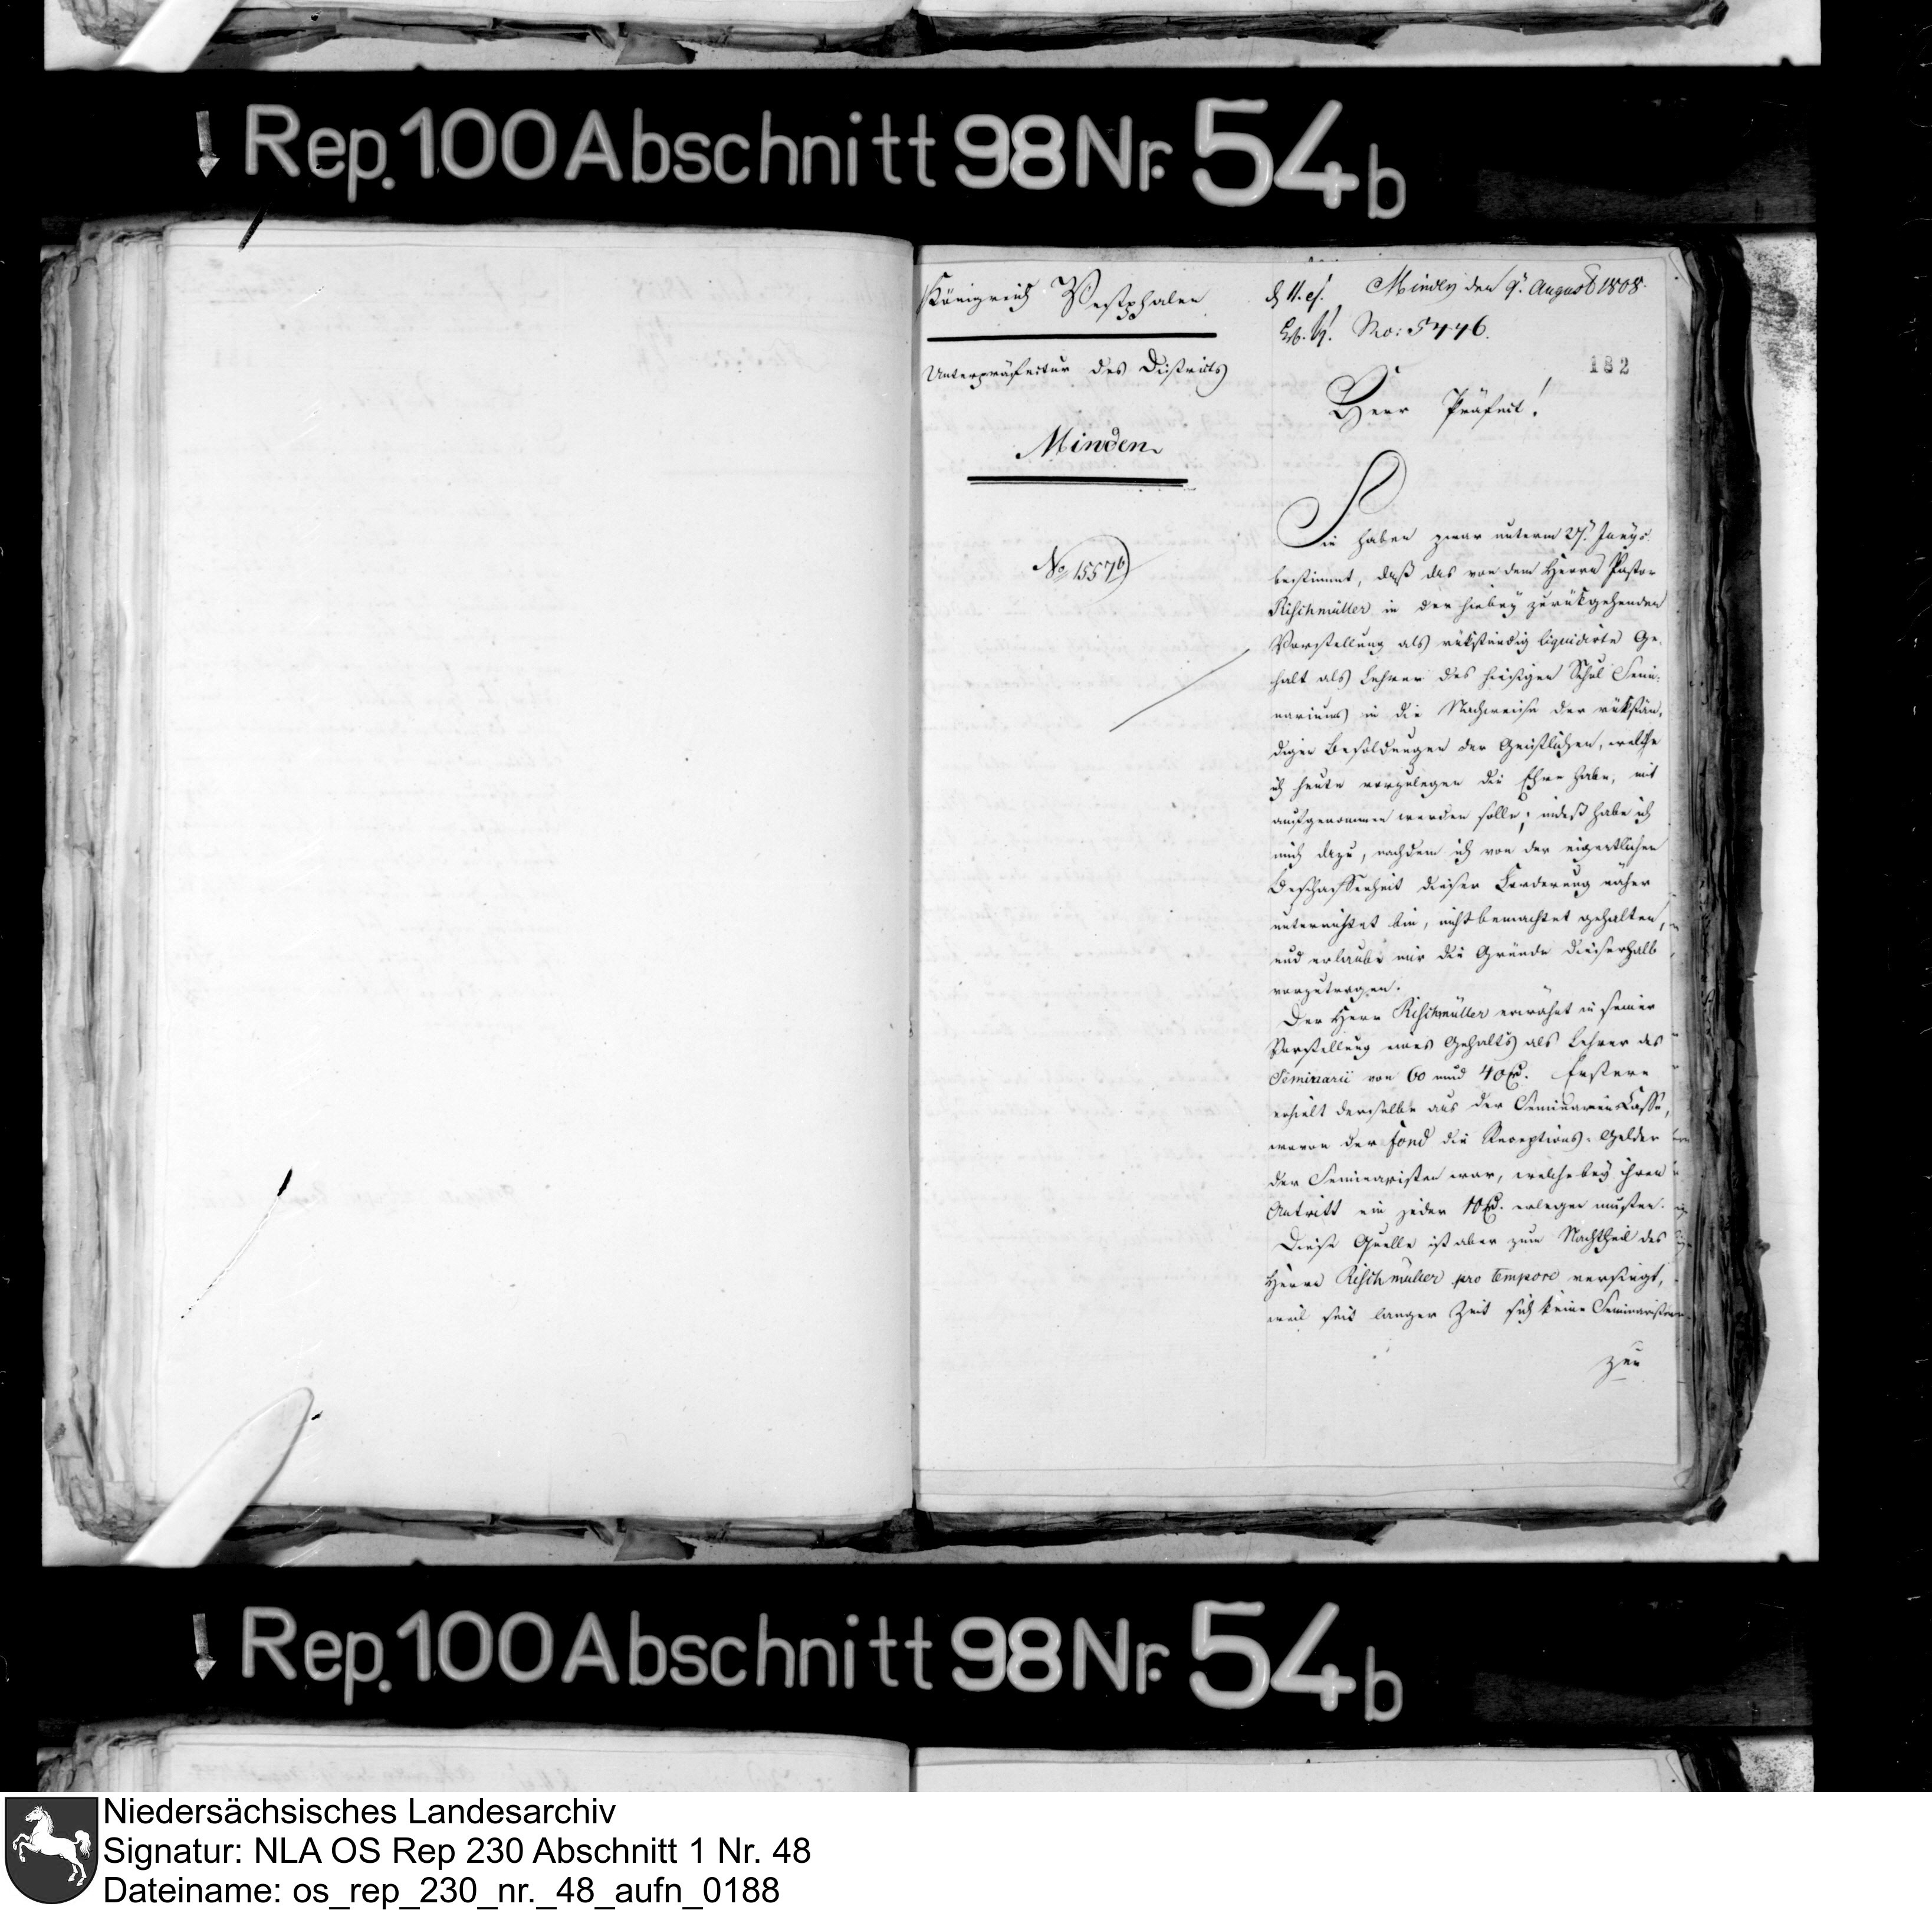 Rep. 100 Abschnitt 98 Nr. 54b
Königreich Westphalen
Unterpräfectur des Districts
Minden
No 1557b
Minden den 9t. August 1808.
No: 5446.
182
Herr Präfect!
Sie haben zwar unterm 27.
bestimmt, daß das von dem Herrn Pastor
Rischmüller in der hiebey zurükgehenden
Vorstellung als rükständig liquidirte Ge-
halt als Lehrer des hiesigen Schul Semi-
nariums in die Nachweise der rükstän-
digen Besoldungen der Geistlichen, welche
ich heute vorzulegen die Ehre habe, mit
aufgenommen werden solle; indeß habe ich
mich dazu, nachdem ich von der eigentlichen
Beschaffenheit dieser Forderung näher
unterrichtet bin, nicht gehalten,
und erlaube mir die Gründe dieserhalb
vorzutragen.
Der Herr Rischmüller erwähnt in seiner
Vorstellung eines Gehalts als Lehrer des
Seminarii von 60 und 40 Rt. Erstere
erhielt derselbe aus der Seminarien Casse,
wovon der Fond die Receptions-Gelder
der Seminaristen war, welche bey ihrem
Antritt ein jeder 10 Rt. erlegen musten.
Diese Quelle ist aber zum Nachtheil des
Herrn Rischmüller pro tempore versiegt,
weil seit langer Zeit sich keine Seminaristen
zur
Rep. 100 Abschnitt 98 Nr. 54b
Niedersächsisches Landesarchiv
Signatur: NLA OS Rep 230 Abschnitt 1 Nr. 48
Dateiname: os_rep_230_nr._48_aufn_0188